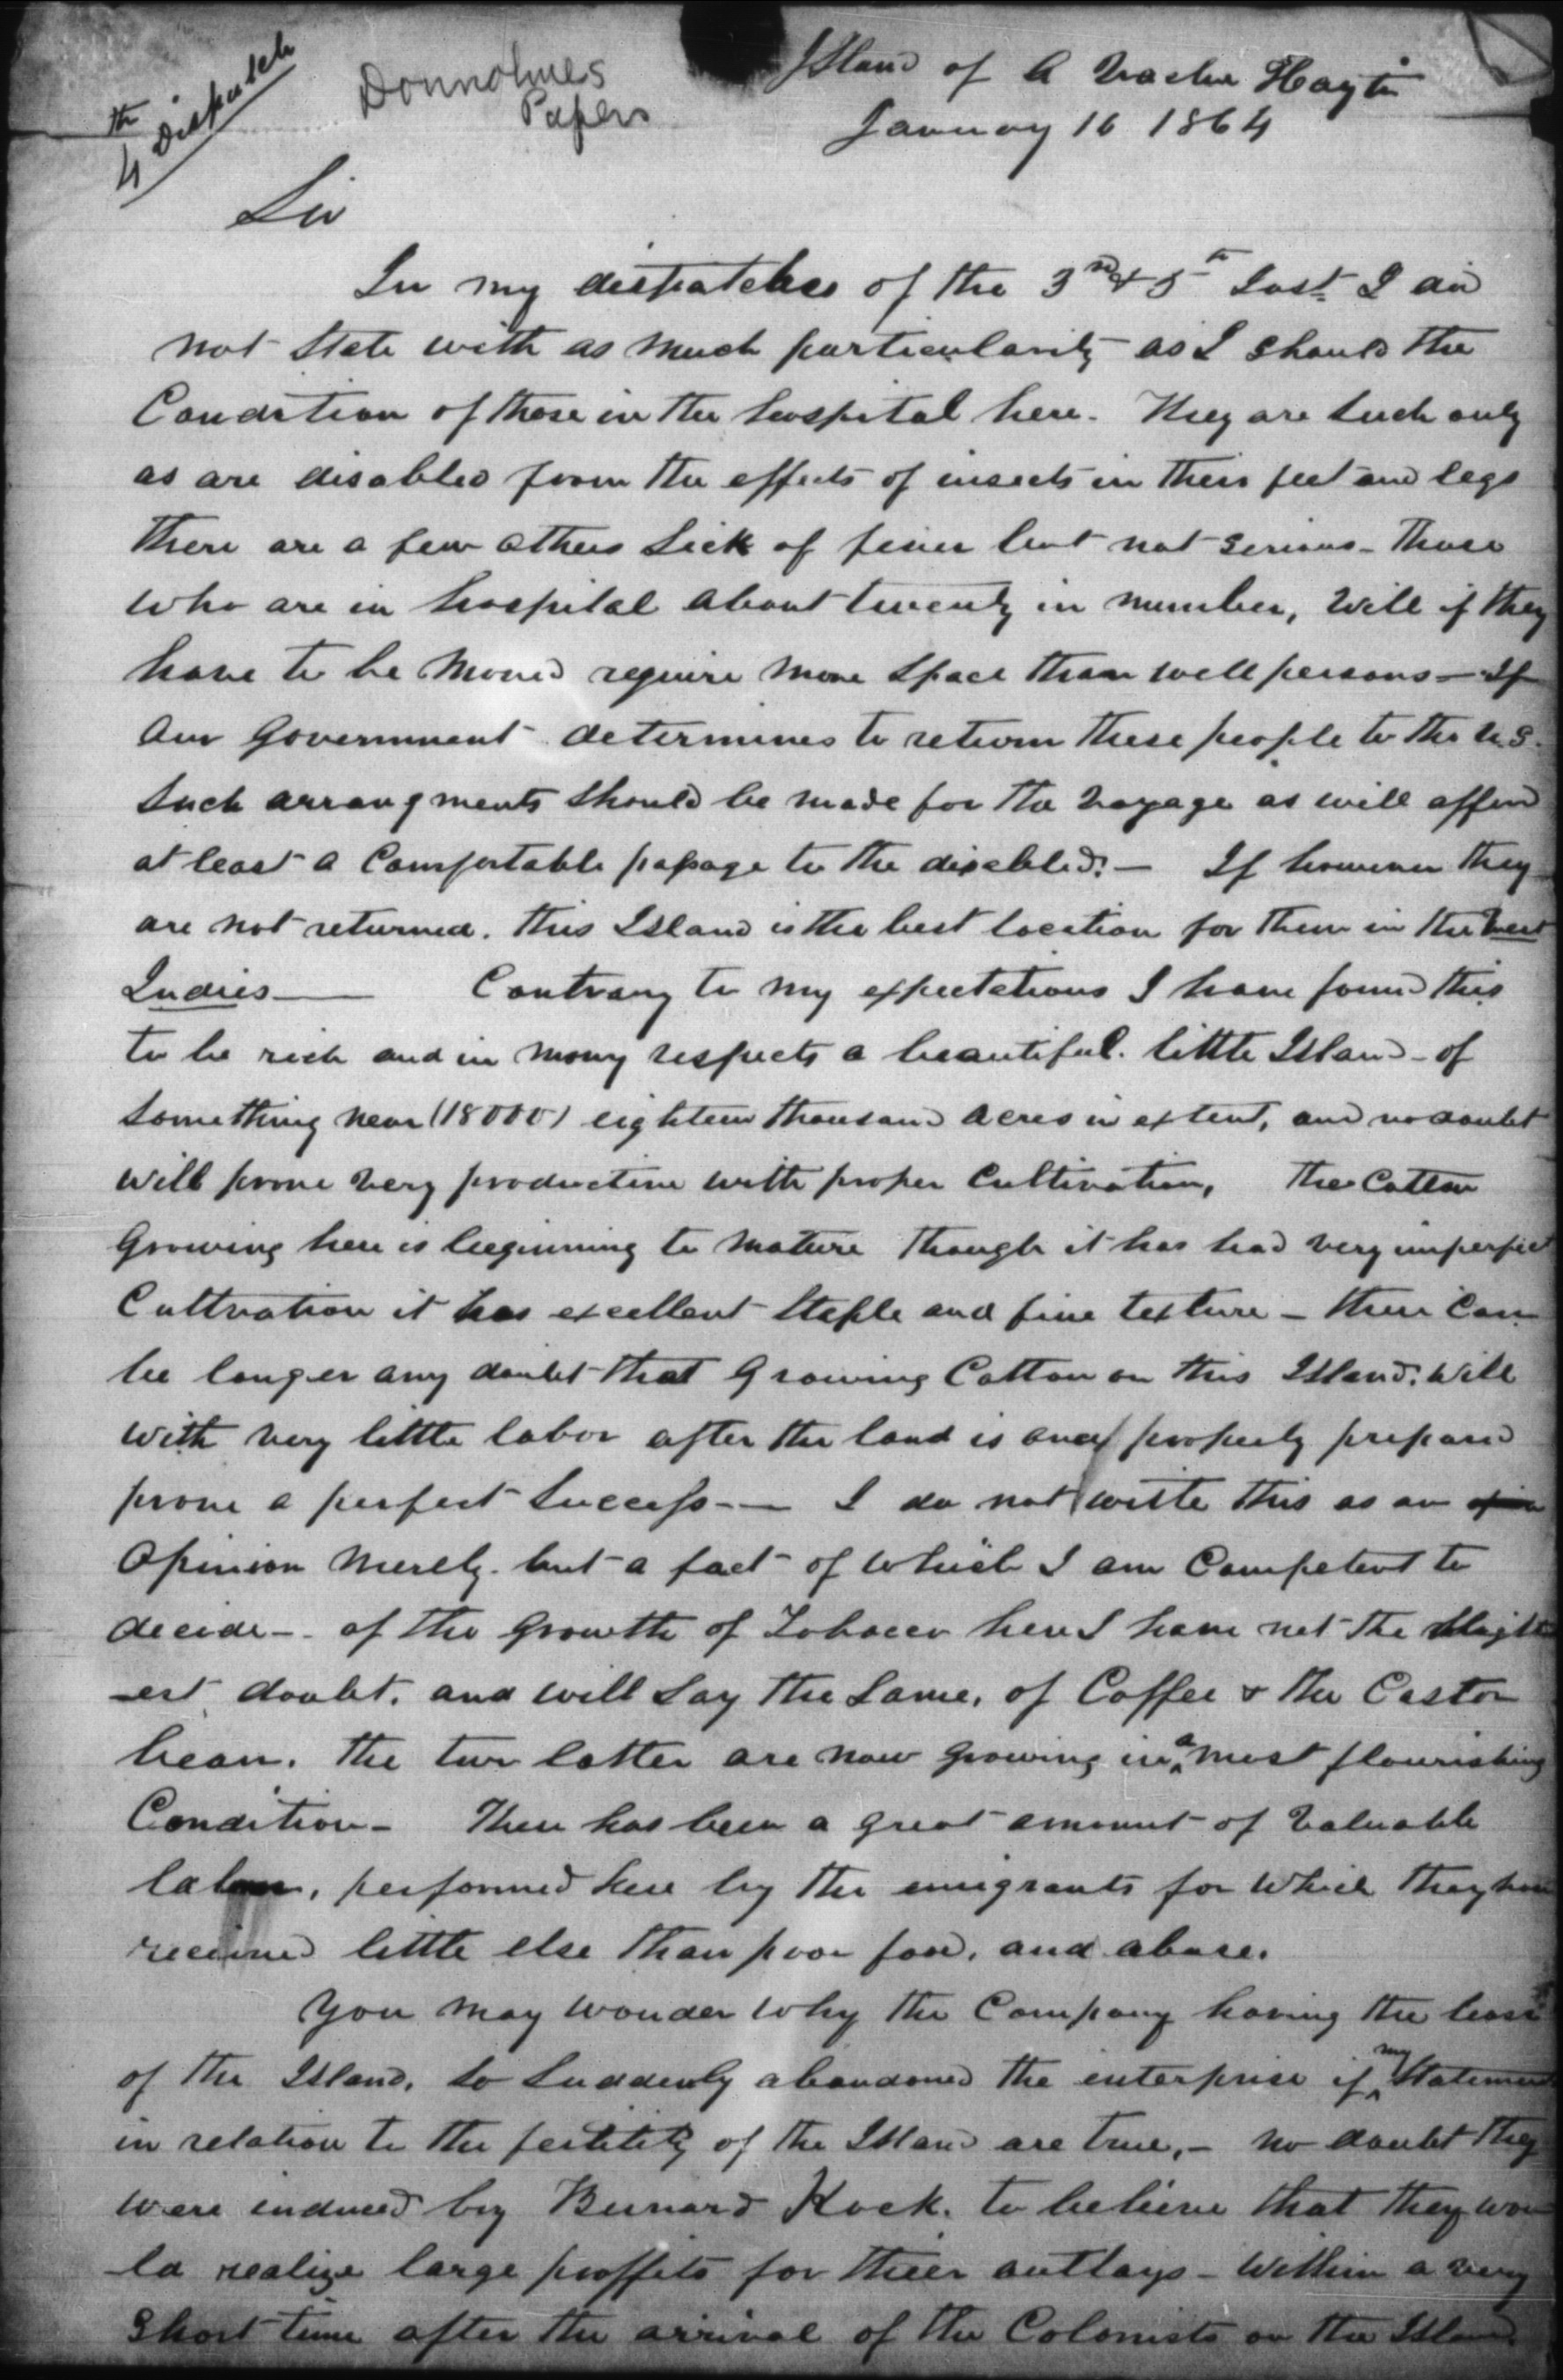 4th Dispatch
Donnohues
Papers
Island of A Vache Hayti
January 16 1864
Sir
In my dispatches of the 3rd & 5th Inst. I did
not State with as much particularity as I should the
Condition of those in the hospital here. They are Such only
as are disabled from the effects of insects in their feet and legs
There are a few others Sick of fever but not Serious - Those
who are in hospital about twenty in number, Will if they
have to be moved require more Space than well persons - If
Our Government determines to return these people to the U.S.
Such arrangments should be made for the voyage as will afford
at least a Comfortable passage to the disabled. - If however they
are not returned. this Island is the best location for them in the West
Indies - Contrary to my expectations I have found this
to be rich and in many respects a beautiful little Island - of
Something near (18000) eighteen thousand acres in extent, and no doubt
will prove very productive with proper Cultivation, The Cotton
Growing here is beginning to mature Though it has had very imperfect
Cultvation it has excellent Staple and fine texture - there Can
be longer any doubt that Growing Cotton on this Island. Will
with very little labor after the land is once properly prepared
prove a perfect Success - I do not write this as an opin
Opinion merely. but a fact of which I am Competent to
decide - of the growth of Tobacco here I have not the slight
-est doubt. and will Say the Same, of Coffee & the Castor
bean. The two latter are now growing in a most flourishing
Condition - There has been a great amount of Valuable
labor, performed here by the emigrants for which they have
received little else than poor food, and abuse.
You may wonder why the Company having the lease
of the Island, So Suddenly abandoned the enterprise if my Statements
in relation to the fertility of the Island are true, - no doubt they
were induced by Bernard Kock. to believe that they wou
-ld realize large proffits for their outlays - Within a very
Short time after the arrival of the Colonists on the Island